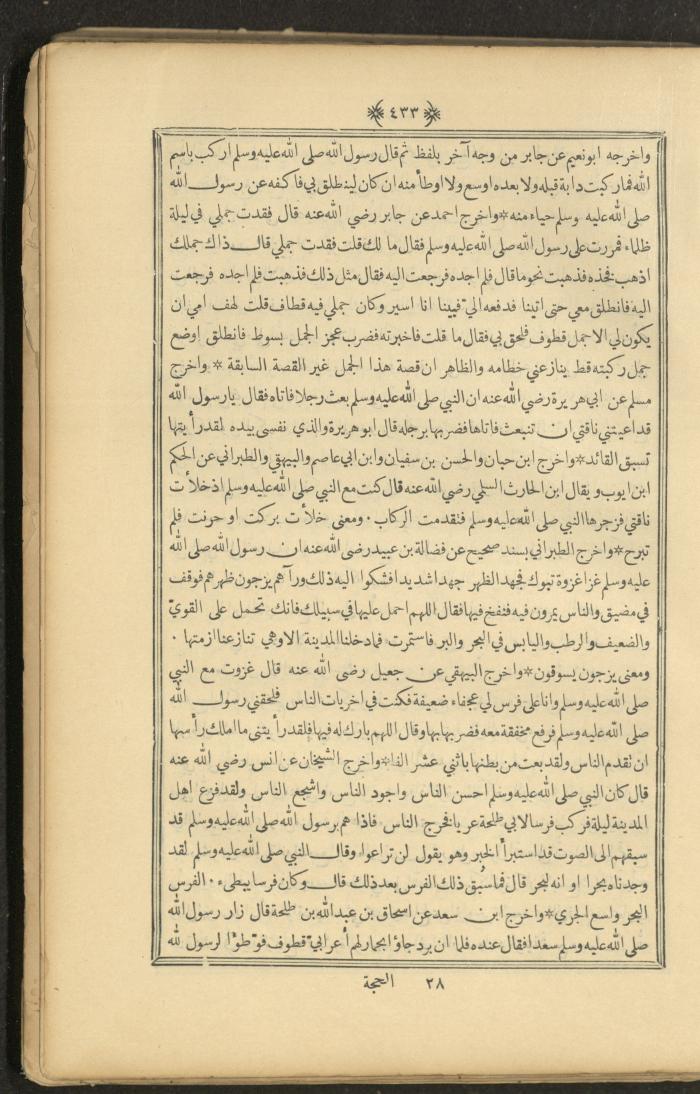 ﴿٤٣٣﴾
واخرجه ابونعيم عن جابر من وجه آخر بلفظ ثم قال رسول الله صلى الله عليه وسلم اركب باسم
الله فماركبت دابة قبله ولا بعده اوسع ولا اوطأ منه ان كان لينطلق بي فاكفه عن رسول الله
صلى الله عليه وسلم حياء منه * واخرج احمد عن جابر رضي الله عنه قال فقدت جملي في ليلة
ظلماء فمررت على رسول الله صلى الله عليه وسلم فقال ما لك قلت فقدت جملي قال ذاك جملك
اذهب فخذه فذهبت نحو ما قال فلم اجده فرجعت اليه فقال مثل ذلك فذهبت فلم اجده فرجعت
اليه فانطلق معي حتى اتينا فدفعه اليّ فبينا انا اسير وكان جملي فيه قطاف قلت لهف امي ان
يكون لي الا جمل قطوف فلحق بي فقال ما قلت فاخبرته فضرب عجز الجمل بسوط فانطلق اوضع
جمل ركبته قط ينازعني خطامه والظاهر ان قصة هذا الجمل غير القصة السابقة * واخرج
مسلم عن ابي هريرة رضي الله عنه ان النبي صلى الله عليه وسلم بعث رجلا فاتاه فقال يا رسول الله
قد اعيتني ناقتي ان تنبعث فاتاها فضربها برجله قال ابو هريرة والذي نفسي بيده لقد رأيتها
تسبق القائد * واخرج ابن حبان والحسن بن سفيان وابن ابي عاصم والبيهقي والطبراني عن الحكم
ابن ايوب ويقال ابن الحارث السلمي رضي الله عنه قال كنت مع النبي صلى الله عليه وسلم اذ خلأت
ناقتي فزجرها النبي صلى الله عليه وسلم فتقدمت الركاب . ومعنى خلأت بركت او حرنت فلم
تبرح * واخرج الطبراني بسند صحيح عن فضالة بن عبيد رضي الله عنه ان رسول الله صلى الله
عليه وسلم غزا غزوة تبوك فجهد الظهر جهدا شديدا فشكوا اليه ذلك ورآهم يزجون ظهرهم فوقف
في مضيق والناس يمرون فيه فنفخ فيها فقال اللهم احمل عليها في سبيلك فانك تحمل على القويّ
والضعيف والرطب واليابس في البحر والبر فاستمرت فما دخلنا المدينة الا وهي تنازعنا ازمتها .
ومعنى يزجون يسوقون * واخرج البيهقي عن جعيل رضي الله عنه قال غزوت مع النبي
صلى الله عليه وسلم وانا على فرس لي عجفاء ضعيفة فكنت في اخريات الناس فلحقني رسول الله
صلى الله عليه وسلم فرفع مخفقة معه فضربها بها وقال اللهم بارك له فيها فلقد رأيتني ما املك رأسها
ان تقدم الناس ولقد بعت من بطنها باثني عشر الفا * واخرج الشيخان عن انس رضي الله عنه
قال كان النبي صلى الله عليه وسلم احسن الناس واجود الناس واشجع الناس ولقد فزع اهل
المدينة ليلة فركب فرسا لابي طلحة عريا فخرج الناس فاذا هم برسول الله صلى الله عليه وسلم قد
سبقهم الى الصوت قد استبرأ الخبر وهو يقول لن تراعوا وقال النبي صلى الله عليه وسلم لقد
وجدناه بحرا او انه لبحر قال فما سُبق ذلك الفرس بعد ذلك قال وكان فرسا يبطيء . الفرس
البحر واسع الجري * واخرج ابن سعد عن اسحاق بن عبدالله بن طلحة قال زار رسول الله
صلى الله عليه وسلم سعدا فقال عنده فلما ان برد جاؤا بحمار لهم أعرابيّ قطوف فوّطؤا لرسول لله
٢٨ الحجة